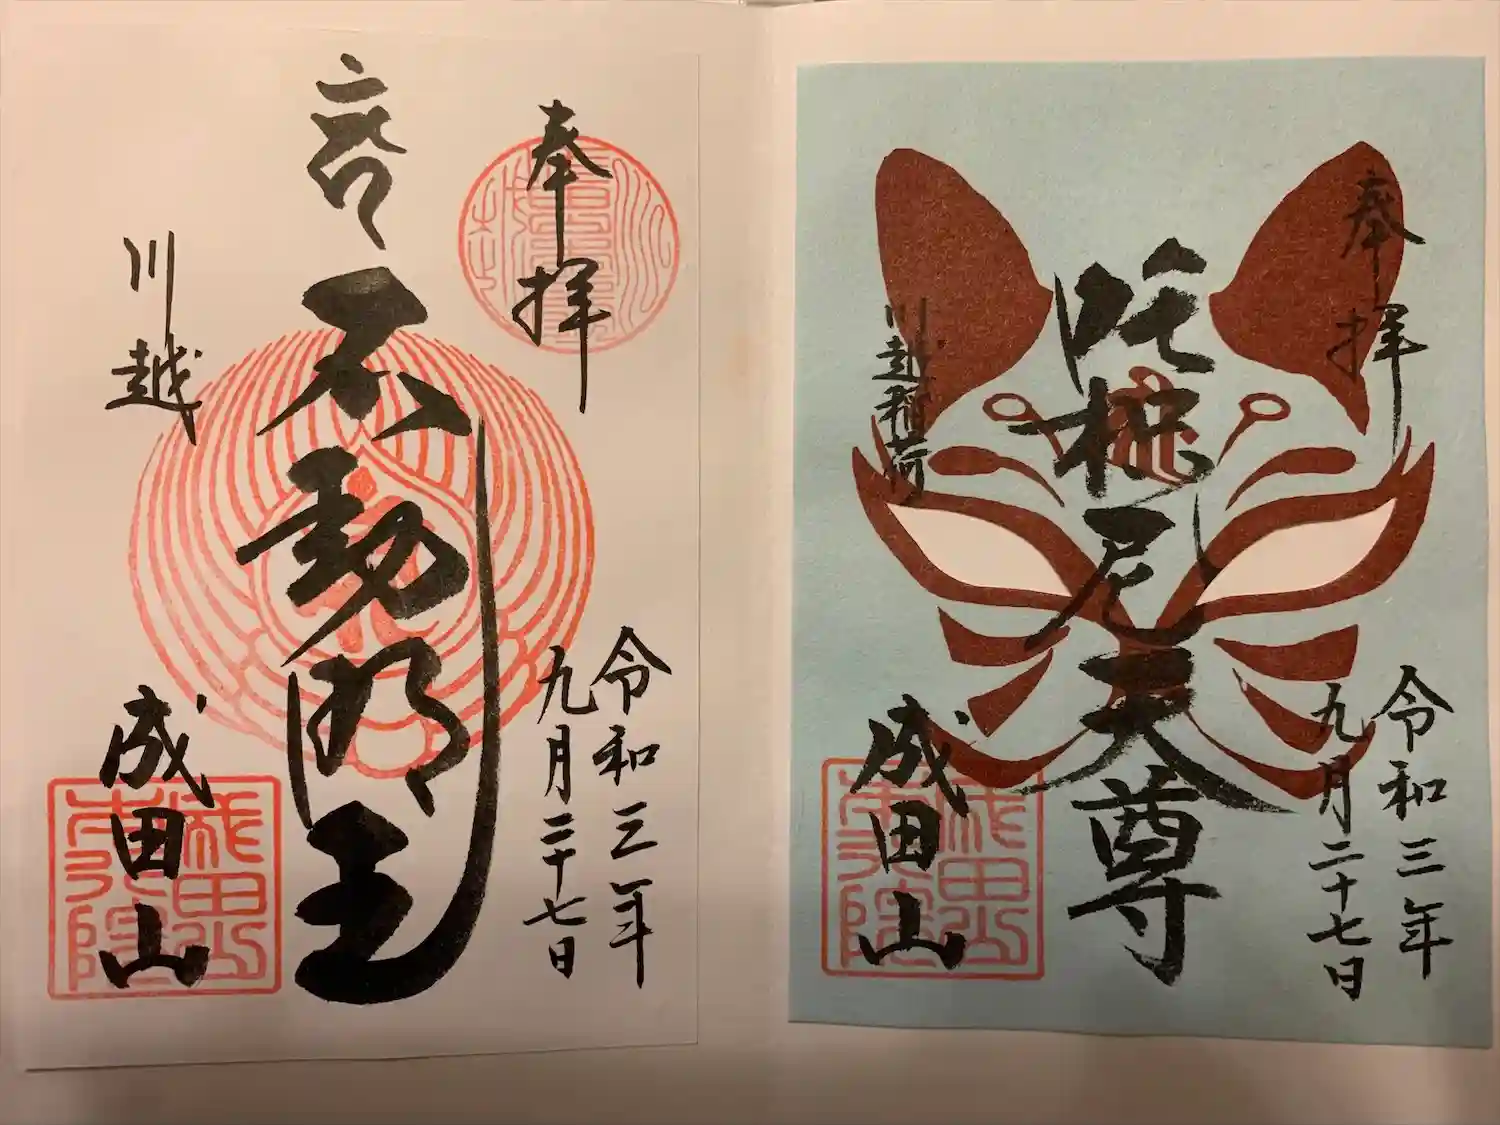 奉拝
令和三年
九月二十七日
不動明王
川越
成田山
奉拝
令和三年
九月二十七日
吒枳尼天尊
川越稲荷
成田山